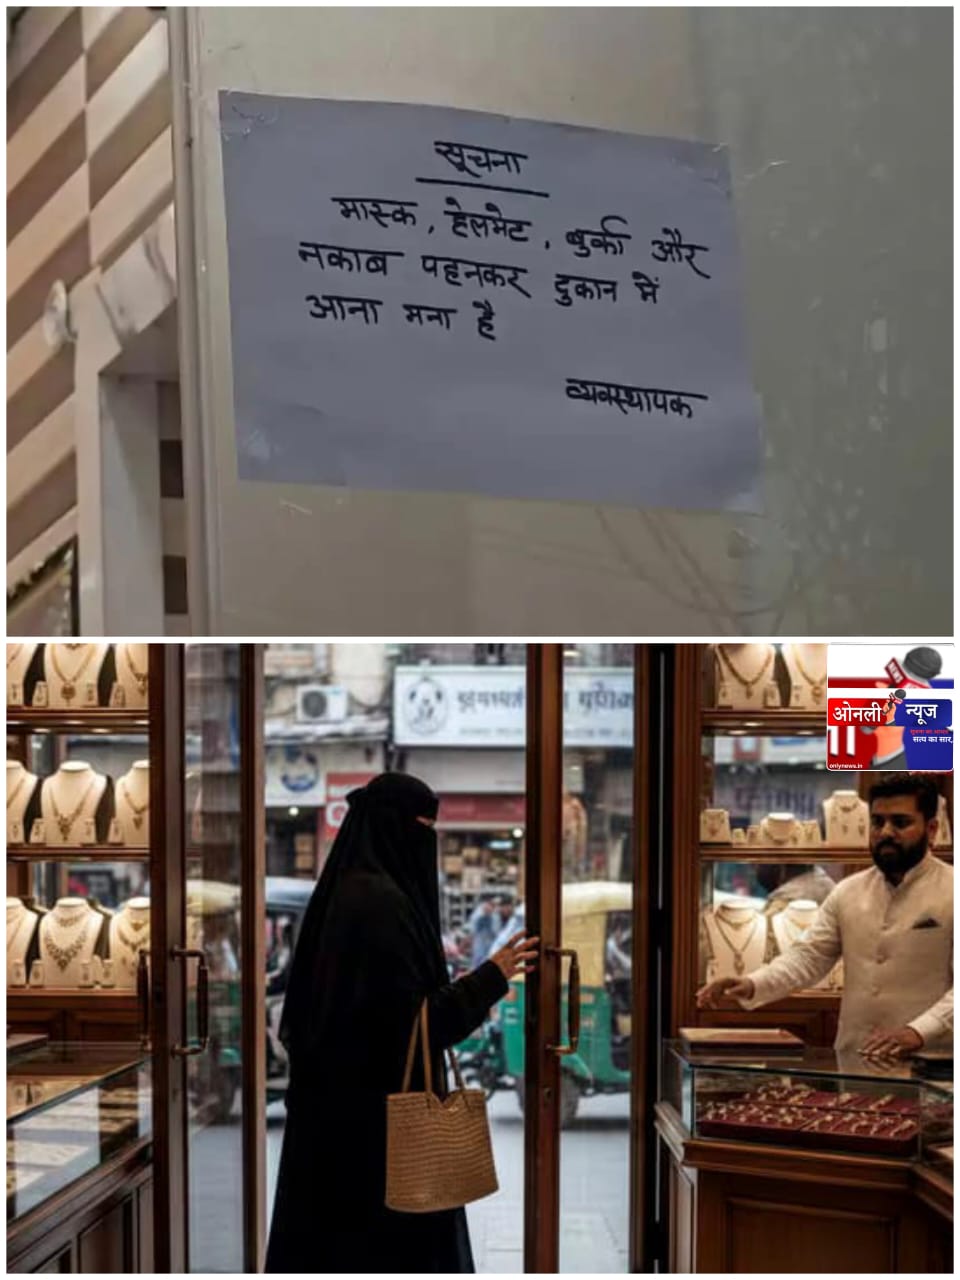 सूचना
मास्क, हेलमेट, बुर्का और
नकाब पहनकर दुकान में
आना मना है
व्यवस्थापक
NEWS
ओनली न्यूज
सूचना का आधार
सत्य का सार,
onlynews.in